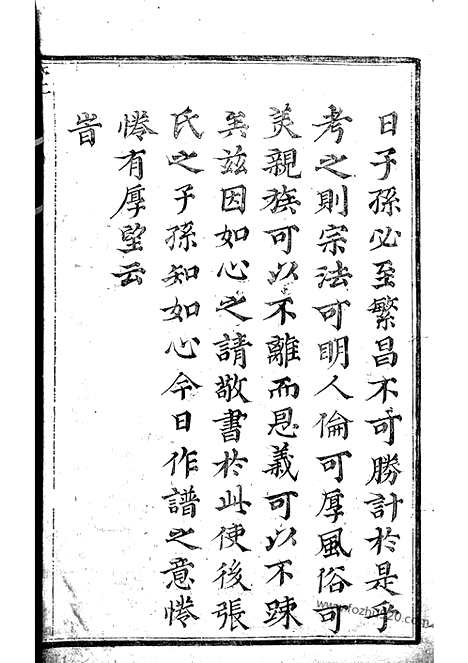 日子孫必至繁昌不可勝計於是乎
考之則宗法可明人倫可厚風俗可
美親族可以不離而恩義可以不踈
矣茲因如心之請敬書於此使後張
氏之子孫知如心今日作譜之意惓
惓有厚望云
旹
www.fozhu920.com